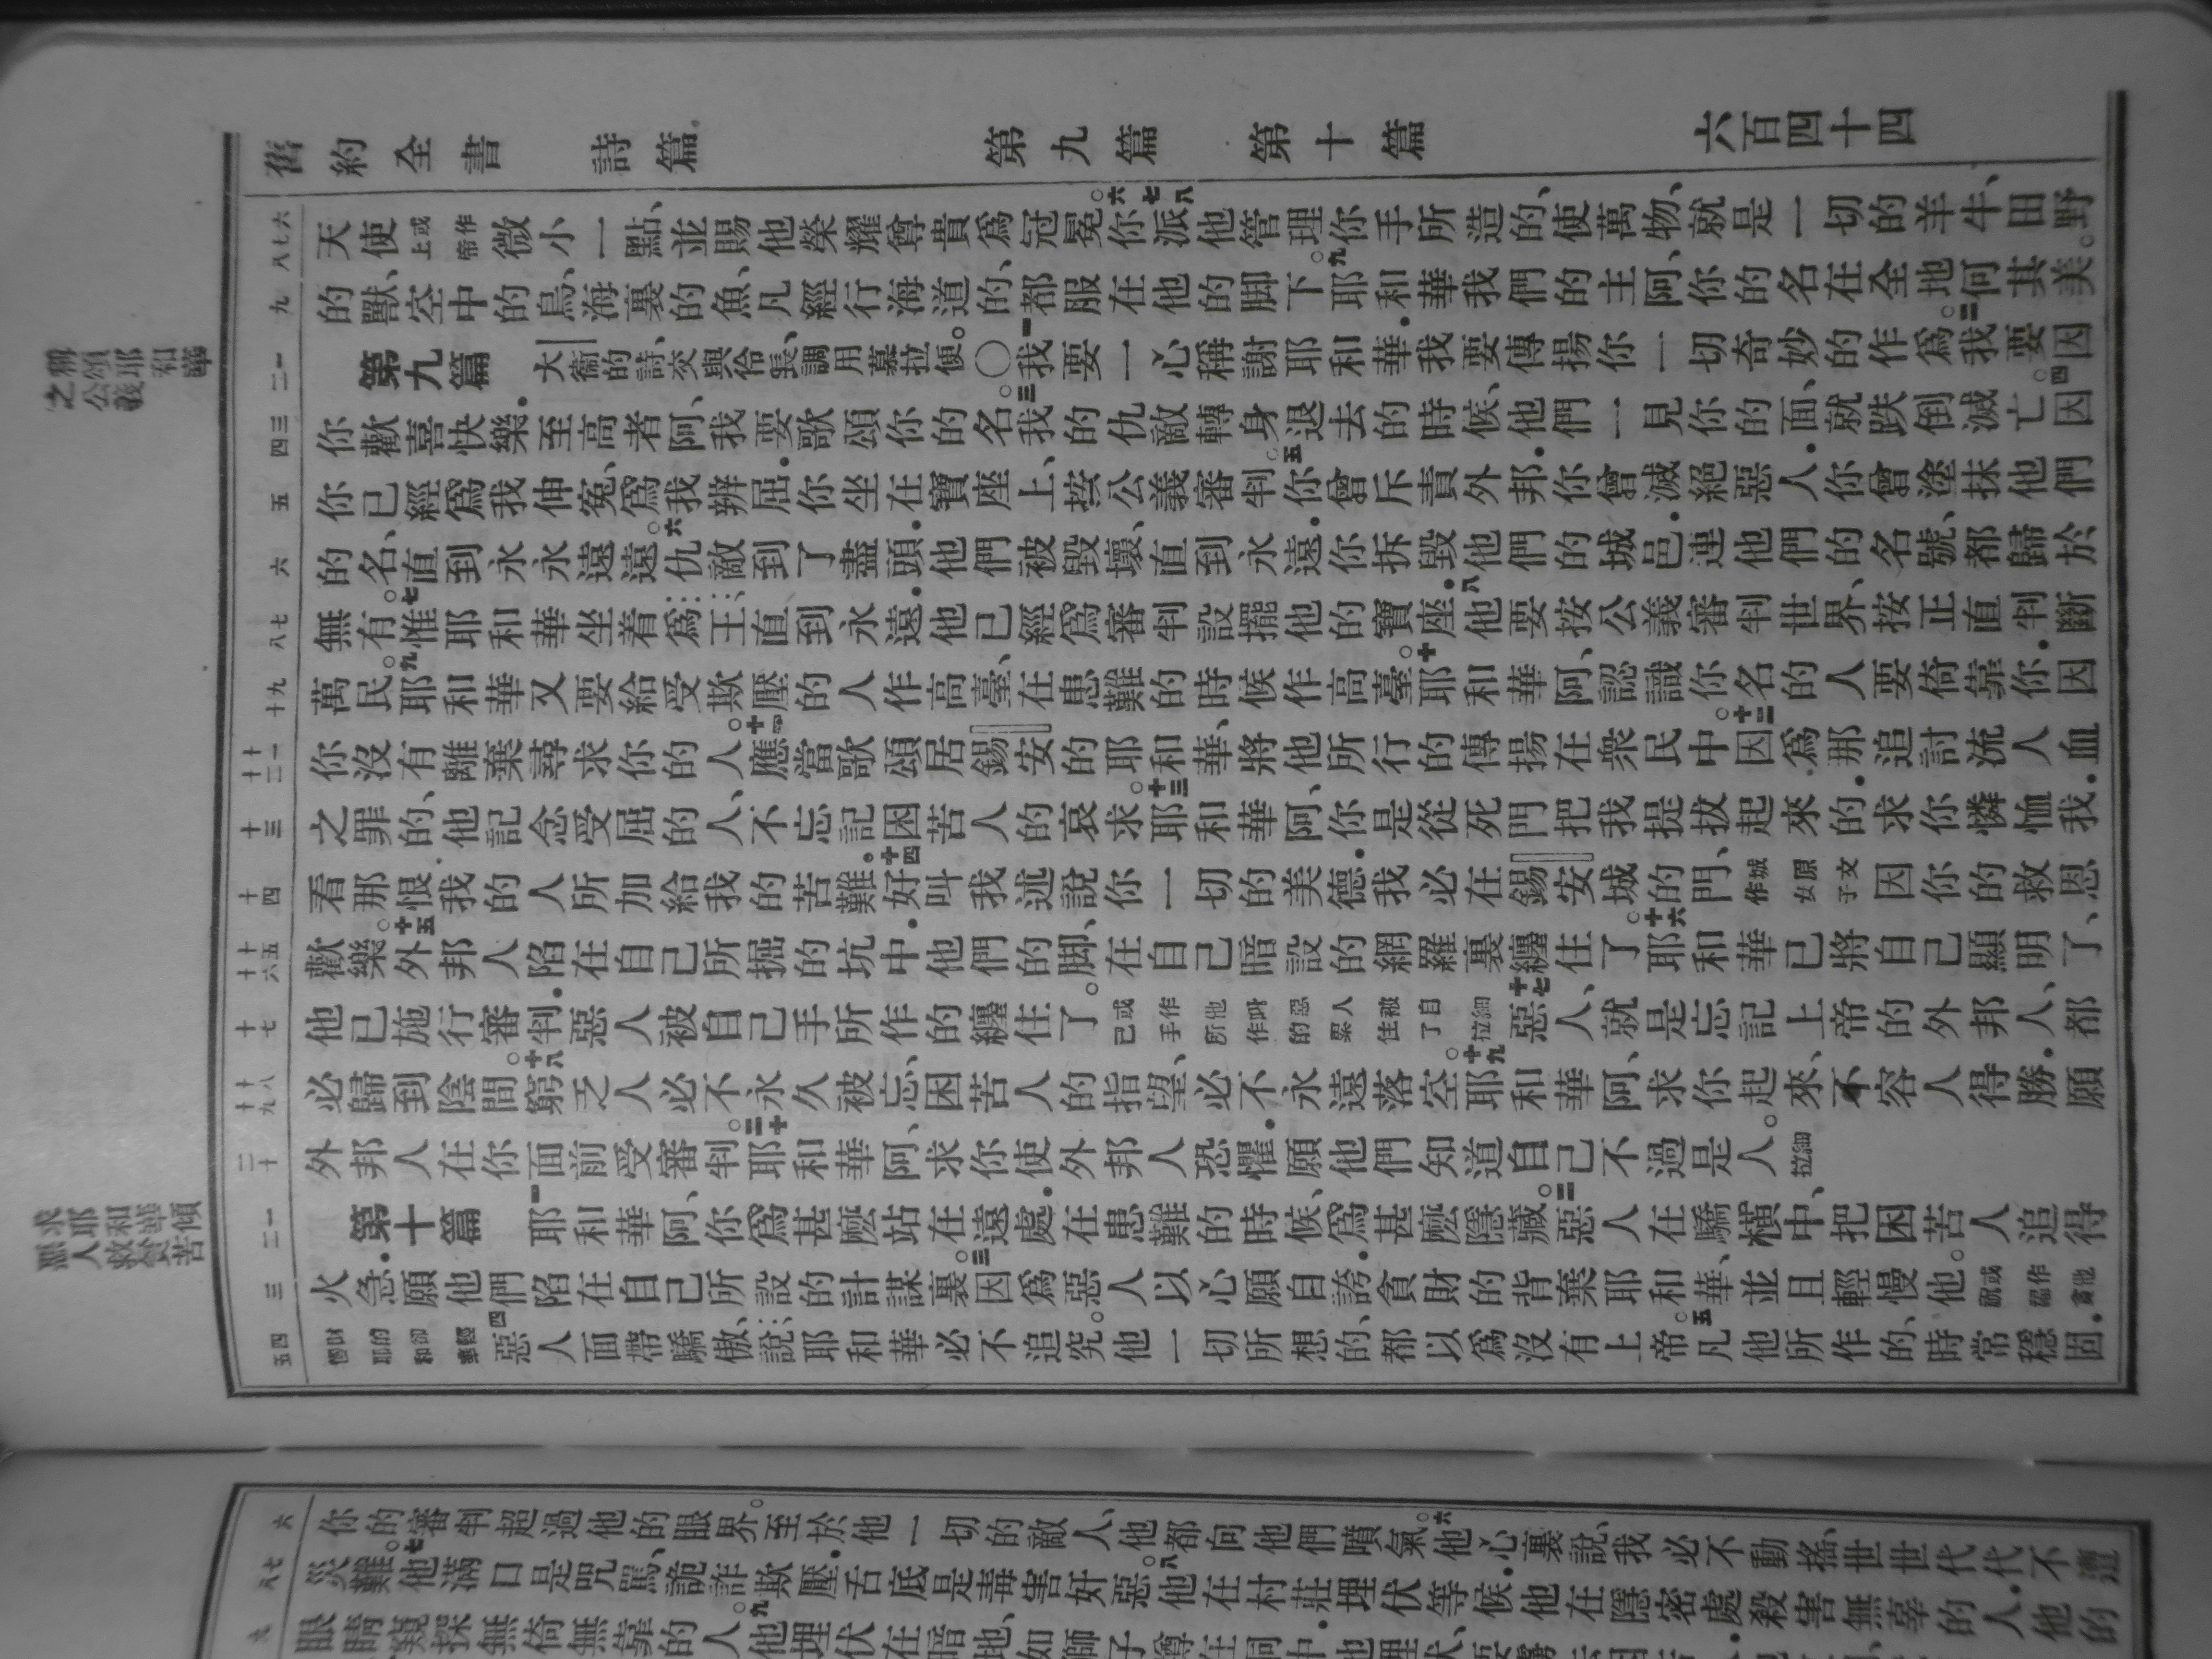 舊約全書　詩篇　第九篇　第十篇　六百四十四
六七八
天使或作上帝微小一點、並賜他榮耀尊貴爲冠冕。六你七派八他管理你手所造的、使萬物、就是一切的羊牛、田野
九
的獸、空中的鳥、海裏的魚、凡經行海道的、都服在他的脚下。九耶和華我們的主阿、你的名在全地何其美。
稱頌耶和華之公義
一二
第九篇　大衞的詩、交與伶長、調用慕拉便。〇一我要一心稱謝耶和華．我要傳揚你一切奇妙的作爲。二我要因
三四
你歡喜快樂．至高者阿、我要歌頌你的名。三我的仇敵轉身退去的時候、他們一見你的面、就跌倒滅亡。四因
五
你已經爲我伸冤、爲我辨屈．你坐在寶座上、按公義審判。五你曾斥責外邦．你曾滅絕惡人．你曾塗抹他們
六
的名、直到永永遠遠。六仇敵到了盡頭．他們被毀壞、直到永遠．你拆毀他們的城邑．連他們的名號、都歸於
七八
無有。七惟耶和華坐着爲王、直到永遠．他已經爲審判設擺他的寶座．八他要按公義審判世界、按正直判斷
九十
萬民。九耶和華又要給受欺壓的人作高臺、在患難的時候作高臺。十耶和華阿、認識你名的人要倚靠你．因
十一十二
你沒有離棄尋求你的人。十一應當歌頌居錫安的耶和華、將他所行的傳揚在衆民中。十二因爲那追討流人血
十三
之罪的、他記念受屈的人、不忘記困苦人的哀求。十三耶和華阿、你是從死門把我提拔起來的．求你憐恤我．
十四
看那恨我的人所加給我的苦難。十四好叫我述說你一切的美德．我必在錫安城的門、城原文作女子因你的救恩
十五十六
歡樂。十五外邦人陷在自己所掘的坑中．他們的脚、在自己暗設的網羅裏纏住了。十六耶和華已將自己顯明了、
十七
他已施行審判．惡人被自己手所作的纏住了。或作他叫惡人被自己手所作的累住了細拉十七惡人、就是忘記上帝的外邦人、都
十八十九
必歸到陰間。十八窮乏人必不永久被忘．困苦人的指望、必不永遠落空。十九耶和華阿、求你起來、不容人得勝．願
二十
外邦人在你面前受審判。二十耶和華阿、求你使外邦人恐懼．願他們知道自己不過是人。細拉
一二
第十篇　一耶和華阿、你爲甚麽站在遠處．在患難的時候、爲甚麽隱藏。二惡人在驕橫中、把困苦人追得
三
火急．願他們陷在自己所設的計謀裏。三因爲惡人以心願自誇．貪財的背棄耶和華、並且輕慢他。或作他祝福貪
四五
財的卻輕慢耶和華四惡人面帶驕傲、說……耶和華必不追究。他一切所想的、都以爲沒有上帝。五凡他所作的、時常穩固．
六
你的審判超過他的眼界。至於他一切的敵人、他都向他們噴氣。六他心裏說、我必不動搖、世世代代不遭
七八
災難。七他滿口是咒罵、詭詐欺壓．舌底是毒害奸惡。八他在村莊埋伏等候．他在隱密處殺害無辜的人．他的
九
眼睛窺探無倚無靠的人。九他埋伏在暗地、如獅子蹲在洞中．